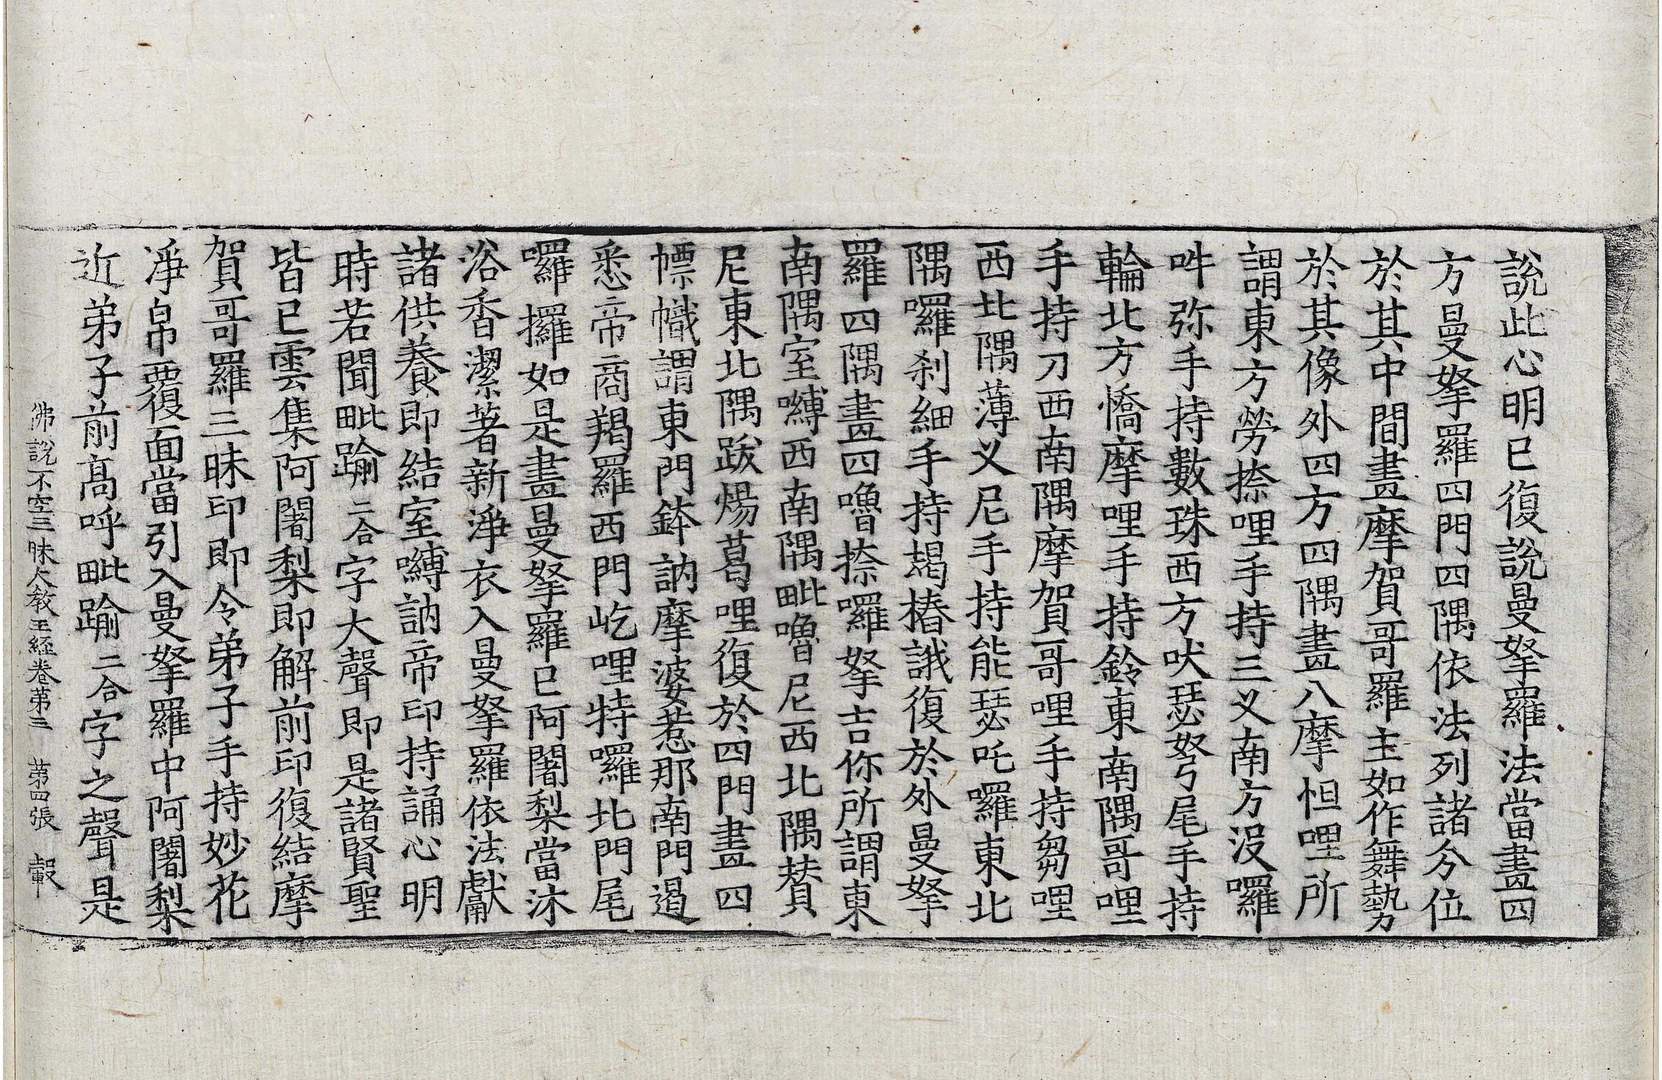 說此心明已復說曼拏羅法當畫四
方曼拏羅四門四隅依法列諸分位
於其中間畫摩賀哥羅主如作舞勢
於其像外四方四隅畫八摩怛哩所
謂東方勞捺哩手持三叉南方沒囉
吽弥手持數珠西方吠瑟弩尾手持
輪北方憍摩哩手持鈴東南隅哥哩
手持刀西南隅摩賀哥哩手持芻哩
西北隅薄叉尼手持能瑟吒囉東北
隅囉刹細手持朅樁誐復於外曼拏
羅四隅畫四嚕捺囉拏吉你所謂東
南隅室嚩西南隅毗嚕尼西北隅賛
尼東北隅跋煬葛哩復於四門畫四
幖幟謂東門鉢訥摩婆惹那南門遏
悉帝二商羯羅西門屹哩特囉北門尾
囉攞如是畫曼拏羅已阿闍梨當沐
浴香潔著新淨衣入曼拏羅依法獻
諸供養即結室嚩訥帝印持誦心明
時若聞毗踰二合字大聲即是諸賢聖
皆已雲集阿闍梨即解前印復結摩
賀哥羅三昧印即令弟子手持妙花
淨帛覆面當引入曼拏羅中阿闍梨
近弟子前高呼毗踰二合字之聲是
佛說不空三昧大教王經卷第三　第四張　轂